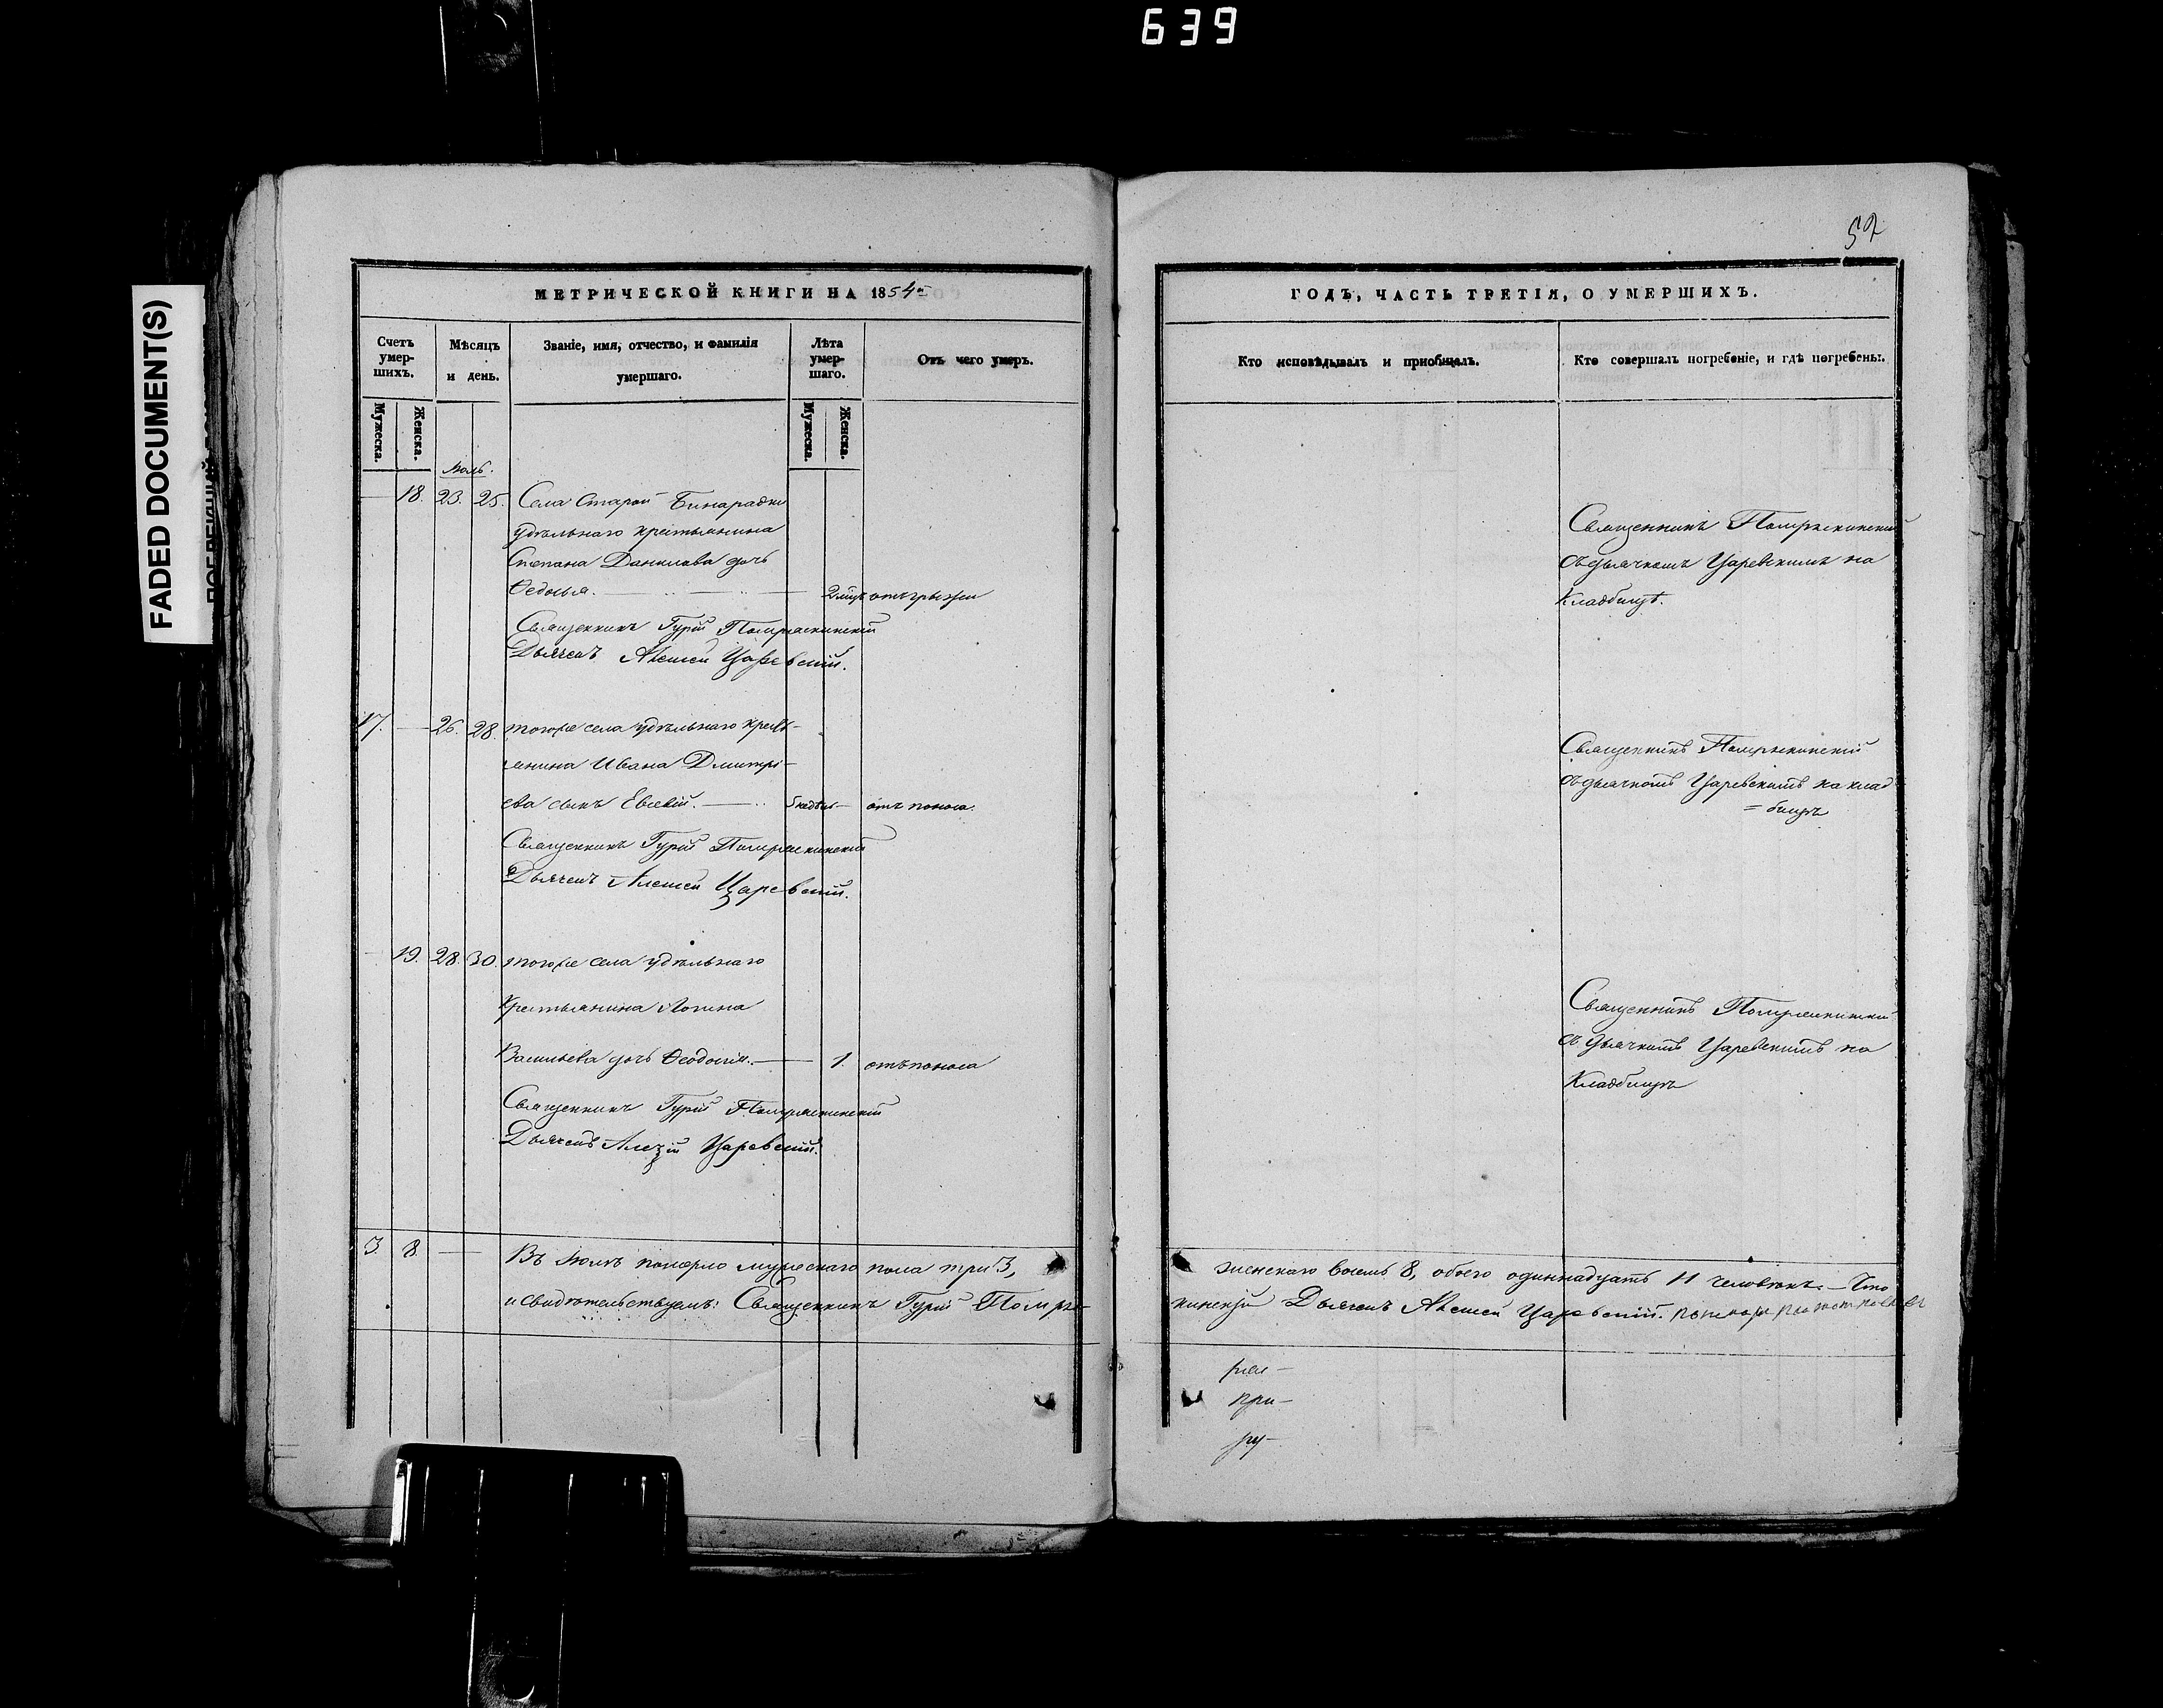 639
FADED DOCUMENT(S)
52
МЕТРИЧЕСКОЙ КНИГИ НА 1854й
Счетъ умершихъ.
Мѣсяцъ и день.
Званіе, имя, отчество, и фамилія умершаго.
Лѣта умершаго.
Отъ чего умеръ.
Мужеска.
Женска.
Мужеска.
Женска.
Іюль.
18. 23. 25. Села Старой Бинарадки
удѣльнаго крестьянина
Степана Данилова дочь
Ѳедосья. 2 мѣс. отъ грыжи
Священникъ Гурій
Дьячекъ Алексей Царевскій.
17. 26. 28. тогоже села удѣльнаго кресть-
янина Ивана Дмитрі-
ева сынъ Евсевій. 5 недѣль отъ поноса.
Священникъ Гурій
Дьячекъ Алексей Царевскій.
19. 28. 30. тогоже села удѣльнаго
крестьянина Логина
Васильева дочь Ѳеодосія. 1. отъ поноса
Священникъ Гурій
Дьячекъ Алексій Царевскій.
3. 8. Въ Іюлѣ померло мужескаго пола три 3,
и свидѣтельствуемъ: Священникъ Гурій
ГОДЪ, ЧАСТЬ ТРЕТІЯ, О УМЕРШИХЪ.
Кто исповѣдывалъ и пріобщалъ.
Кто совершалъ погребеніе, и гдѣ погребены.
Священникъ
съ дьячкомъ Царевскимъ на
кладбищѣ.
Священникъ
съ дьячкомъ Царевскимъ на клад
=бищѣ
Священникъ
съ дьячкомъ Царевскимъ на
кладбищѣ
женскаго восемь 8, обоего одиннадцать 11 человѣкъ. — Что
кинскій Дьячекъ Алексей Царевскій.
при-
ру-